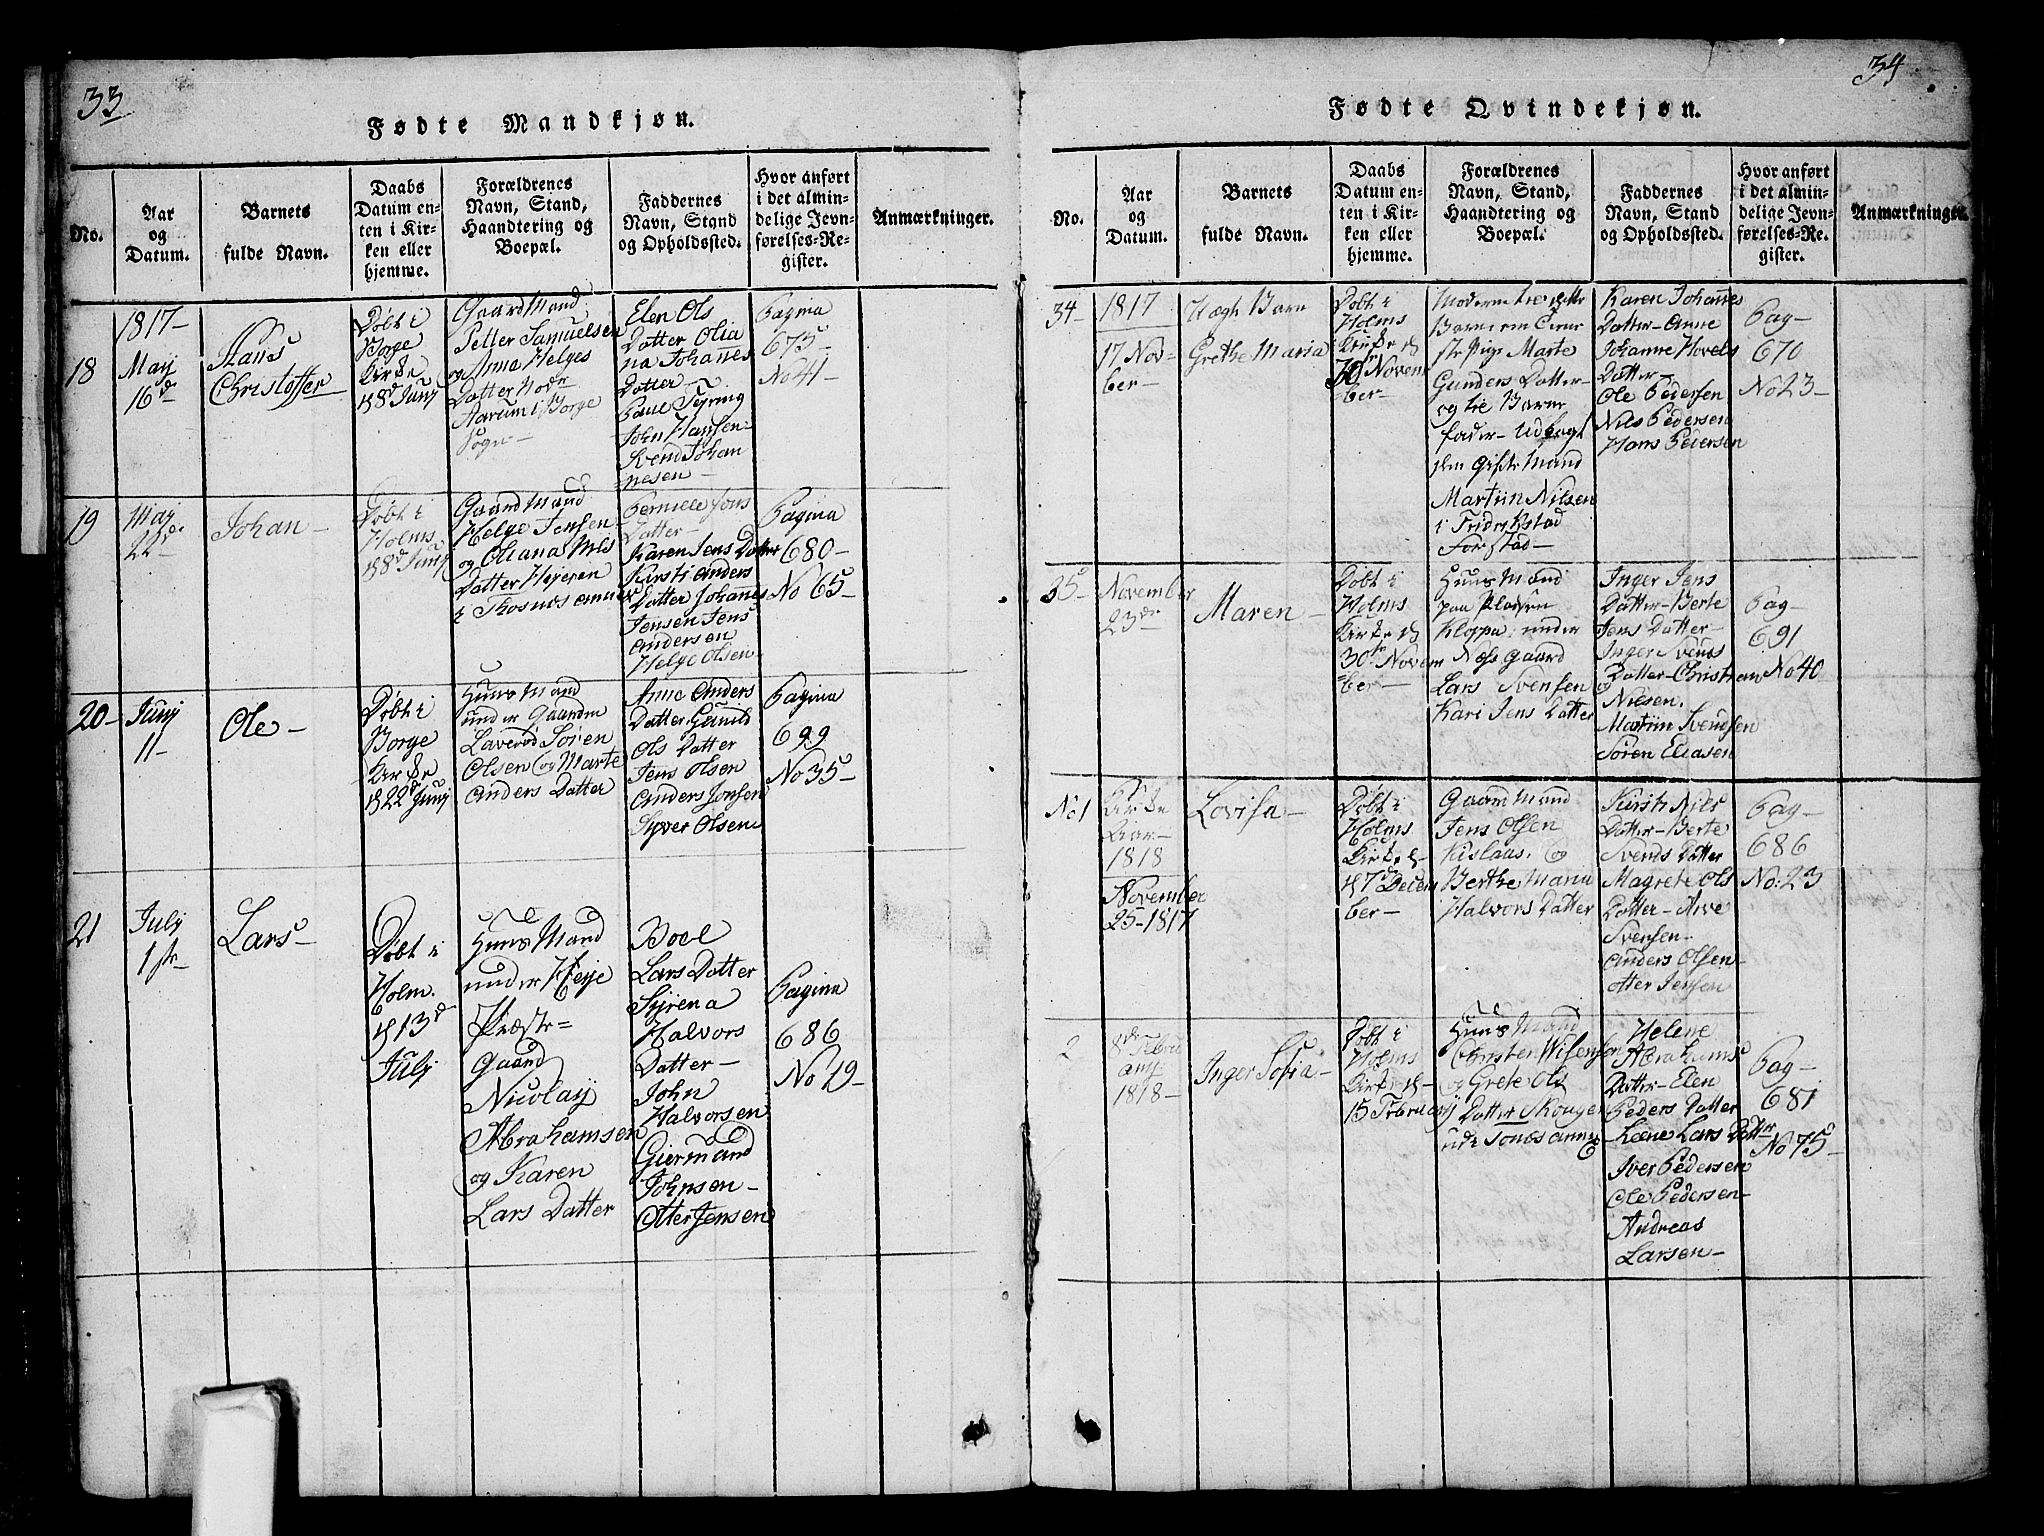 33
Fødte Mandkjøn.
No.
Aar
og
Datum.
Barnets
fulde Navn.
Daabs
Datum en-
ten i Kir-
ken eller
hjemme.
Forældrenes
Navn, Stand,
Haandtering og
Boepæl.
Faddernes
Navn, Stand
og Opholdssted.
Hvor anført
i det almin-
delige Jevn-
førelses-Re-
gister.
Anmærkninger.
18
1817-
May
16d
Hans
Christoffer
Døbt i
Borge
Kirke
d 8d Junj
Gaard Mand
Petter Samuelsen
og Anne Helges
Datter Nodr
Aarum i Borge
Sogn-
Elen Ols
Datter Olia
na Johannes
Datter
John Hansen
Svend Johan
nesen-
Pagina
675
No 41-
19
May
22d
Johan-
Døbt i
Holms
d 8d Junj
Gaard Mand
Helge Jensen
og Oliana Nils
Datter
Pernille Jons
Datter-
Karen Jens Datter
Kirsti Anders
Datter Johannes
Jensen Jens
Andersen
Helge Olsen-
Pagina
680-
No 65-
20-
Junj
11-
Ole-
Døbt i
Borge
Kirke
d 22d Junj
Huus Mand
under Gaarden
Laverød Søren
Olsen og Marte
Anders Datter
Anne Anders
Datter Gunild
Ols Datter
Jens Olsen
Anders Jonsen
Syver Olsen
Pagina
699
No 35-
21
July
1ste
Lars-
Døbt i
Holm.
d 13d
July
Huus Mand
under
Præste=
Gaard
Nicolay
Abrahamsen
og Karen
Lars Datter
Boel
Lars Datter
Syrena
Halvors
Datter-
John
Halvorsen
Giermund
Johnsen-
Otter Jensen
Pagina
686
No 19-
34
Fødte Qvindekjøn.
No.
Aar
og
Datum.
Barnets
fulde Navn.
Daabs
Datum en-
ten i Kir-
ken eller
hjemme.
Forældrenes
Navn, Stand,
Haandtering og
Boepæl.
Faddernes
Navn, Stand
og Opholdssted.
Hvor anført
i det almin-
delige Jevn-
førelses-Re-
gister.
Anmærkninger.
34-
1817
17 Nov=
ber-
Uægte Barn
Grethe Maria
Døbt i
Holms
Kirke d
30 Novem
ber-
Moderen til dette
Barn er en Tiene
ste Pige Marte
Gunders Datter-
og til Barne
fader- Udlagt
den Gifte Mand
Martin Nilsen
i Friderikstad
Forstad-
Karen Johannes
Datter- Anne
Johanne Hovels
Datter-
Ole Pedersen
Nils Pedersen
Hans Pedersen
Pag-
670
No 23-
35-
November
23de
Maren-
Døbt i
Holms
Kirke d
30te Novem
ber-
Huus Mand
paa Pladsen
Kloppa under
Næs Gaard
Lars Svensen
og
Kari Jens Datter
Inger Jens
Datter- Berte
Jens Datter-
Inger Svends
Datter- Christian
Nielsen.
Martin Svendsen
Søren Eliasen
Pag-
691
No 40
No 1
Kirke
Aar-
1818
November
25-1817
Lovisa-
Døbt i
Holms
Kirke d-
d 7 Decem
ber-
Gaard Mand
Jens Olsen
og
Berthe Maria
Halvors Datter
Kirsti Nils
Datter- Berte
Svends Datter
Magrete Ols
Datter- Arve
Svensen-
Anders Olsen-
Otter Jensen
Pag-
686
No: 23
2
8de Febru
arij
1818-
Inger Sofia-
Døbt i
Holms
Kirke d-
15 Februarij
Huus Mand
Christen Nilsensen
og Grete Ols
Datter
Helene
Abrahams
Datter- Elen
Peders Datter
Leene Lars Datter
Iver Pedersen
Ole Pedersen-
Andreas
Larsen-
Pag-
681
No 75-